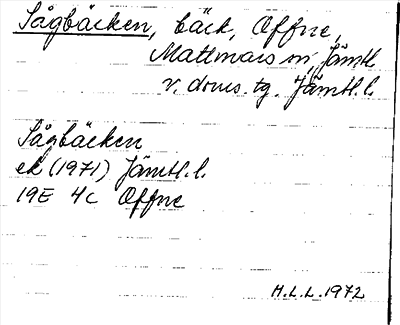 Sågbäcken, bäck, Offne,
Mattmars sn, Jämtl.
v. doms. tg. Jämtl. l.
Sågbäcken
ek (1971) Jämtl. l.
19E 4c Offne
H.L.L. 1972